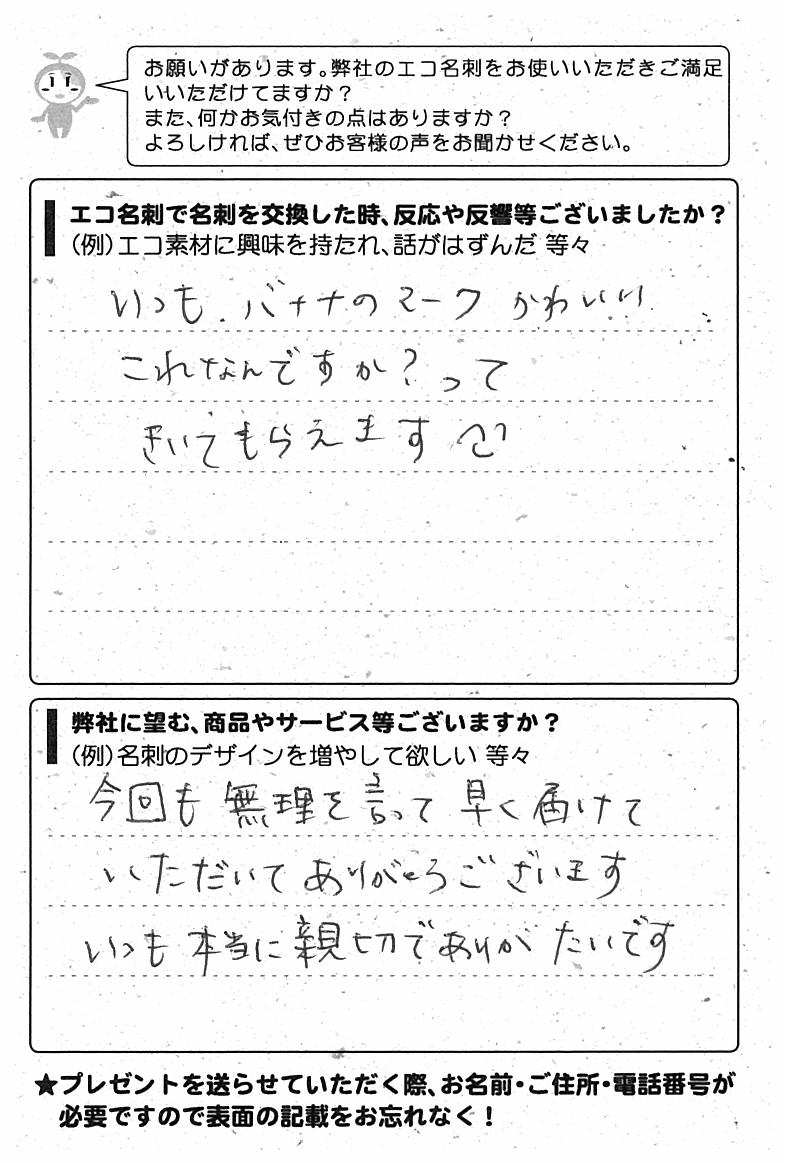 お願いがあります。弊社のエコ名刺をお使いいただきご満足
いいただけてますか？
また、何かお気付きの点はありますか？
よろしければ、ぜひお客様の声をお聞かせください。
エコ名刺で名刺を交換した時、反応や反響等ございましたか？
（例）エコ素材に興味を持たれ、話がはずんだ 等々
いつも、バナナのマーク かわいい!
これなんですか？って
きいてもらえます
弊社に望む、商品やサービス等ございますか？
（例）名刺のデザインを増やして欲しい 等々
今回も 無理を言って 早く届けて
いただいて ありがとうございます
いつも 本当に親切でありがたいです
★プレゼントを送らせていただく際、お名前・ご住所・電話番号が
必要ですので表面の記載をお忘れなく！